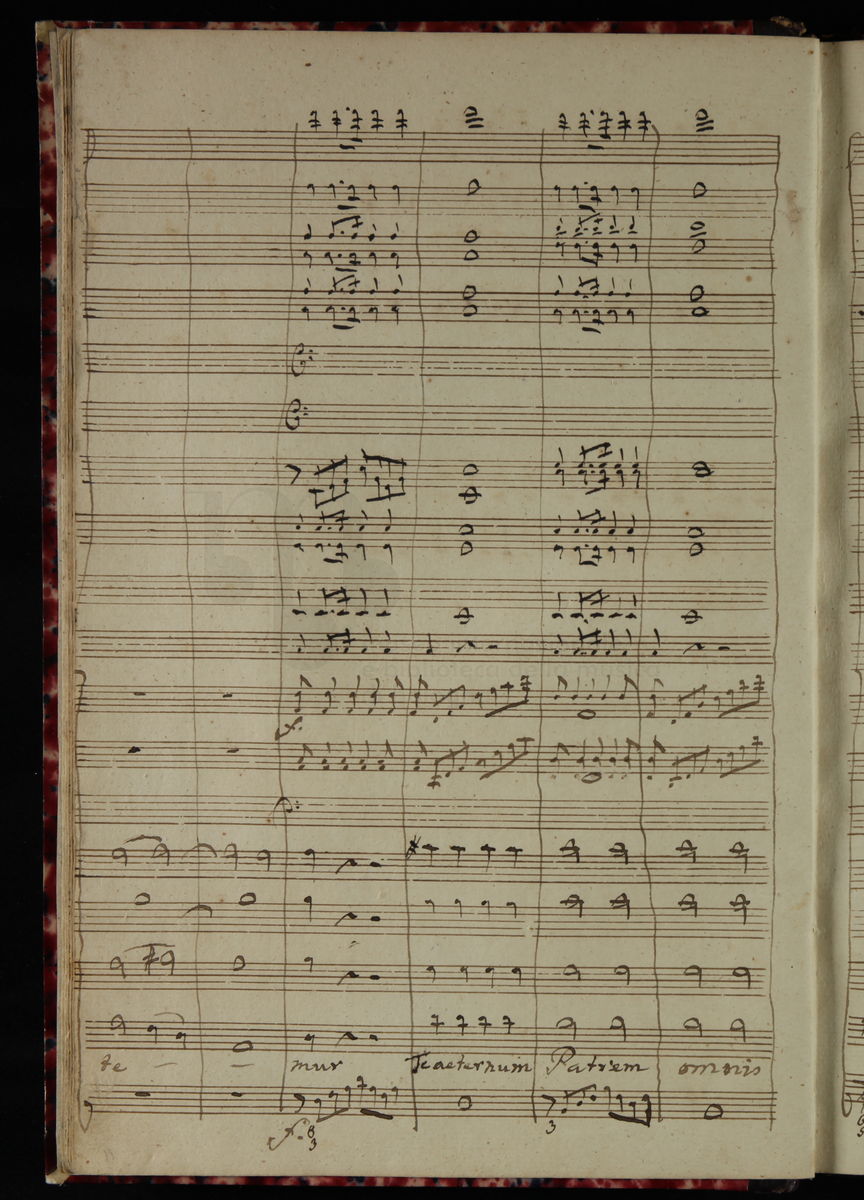 f.
te - - mur Te aeternum Patrem omnis
f. 8 3
3